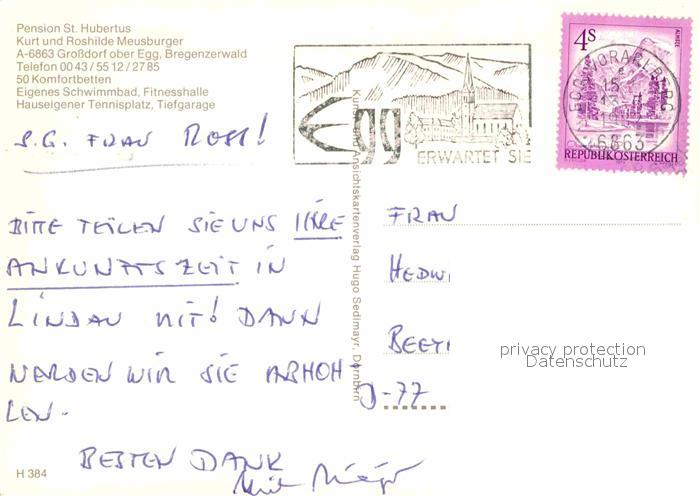 Pension St. Hubertus
Kurt und Roshilde Meusburger
A-6863 Großdorf ober Egg, Bregenzerwald
Telefon 00 43 / 55 12 / 27 85
50 Komfortbetten
Eigenes Schwimmbad, Fitnesshalle
Hauseigener Tennisplatz, Tiefgarage
S.G. FRAU
BITTE TEILEN SIE UNS IHRE
ANKUNFTSZEIT IN
LINDAU MIT! DANN
WERDEN WIR SIE ABHOH
LEN.
BESTEN DANK
H 384
Ansichtskartenverlag Hugo Sedlmayr, Dornbirn
Egg
ERWARTET SIE
4 S
ALMSEE
REPUBLIK ÖSTERREICH
EGG, VORARLBERG
6863
FRAU
HEDWI
D-77
privacy protection
Datenschutz